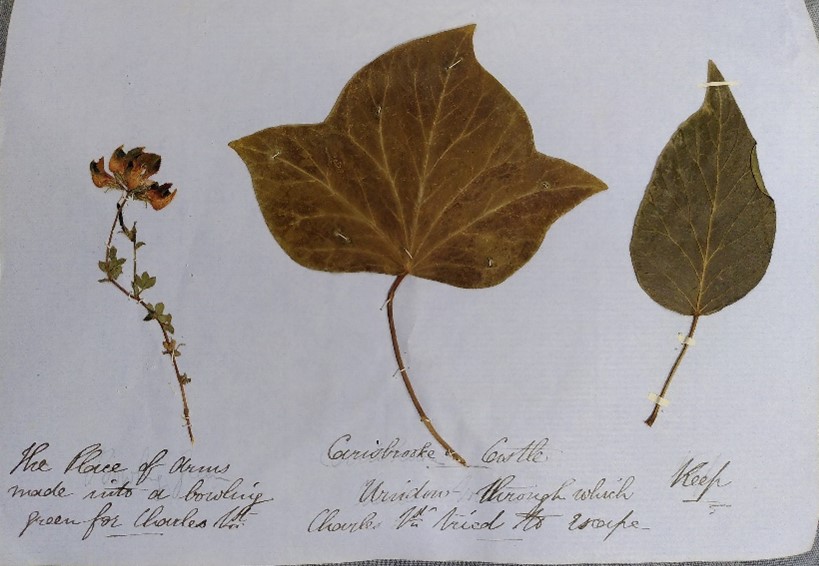 The Place of Arms
made into a bowling
green for Charles 1st.
Carisbrooke Castle.
Window through which
Charles 1st tried to escape
Keep